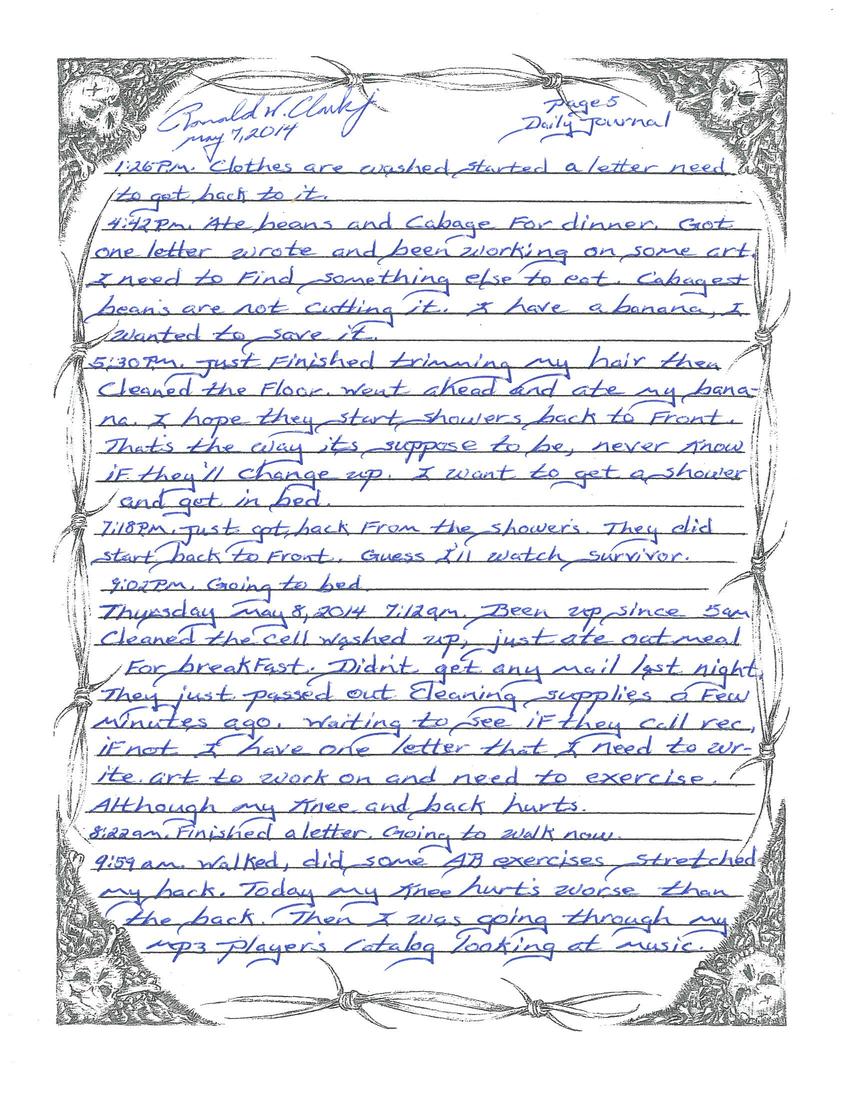 Ronald W. Clark jr
page 5
May 7, 2014
Daily Journal
1:26PM. Clothes are washed, started a letter need
to get back to it.
4:42PM. Ate beans and Cabage For dinner. Got
one letter wrote and been working on some art.
I need to Find something else to eat. Cabages+
beans are not cutting it. I have a banana, I
wanted to save it.
5:30PM. Just Finished trimming my hair then
Cleaned the Floor. Went ahead and ate my bana-
na. I hope they start showers back to Front.
That's the way its suppose to be, never Know
iF they'll change up. I want to get a shower
and get in bed.
7:18PM. Just got back From the showers. They did
start back to Front. Guess I'll watch survivor.
9:02PM. Going to bed.
Thursday May 8, 2014 7:12am. Been up since 5am
Cleaned the cell washed up, just ate out meal
For breakFast. Didn't get any mail last night.
They just passed out Cleaning supplies a Few
minutes ago. Waiting to see iF they call rec,
iF not I have one letter that I need to wr-
ite. art to work on and need to exercise.
Although my Knee and back hurts.
8:22am. Finished a letter. Going to walk now.
9:59am. Walked, did some AB exercises stretched
my back. Today my Knee hurt's worse than
the back. Then I was going through my
mp3 player's Catalog looking at music.